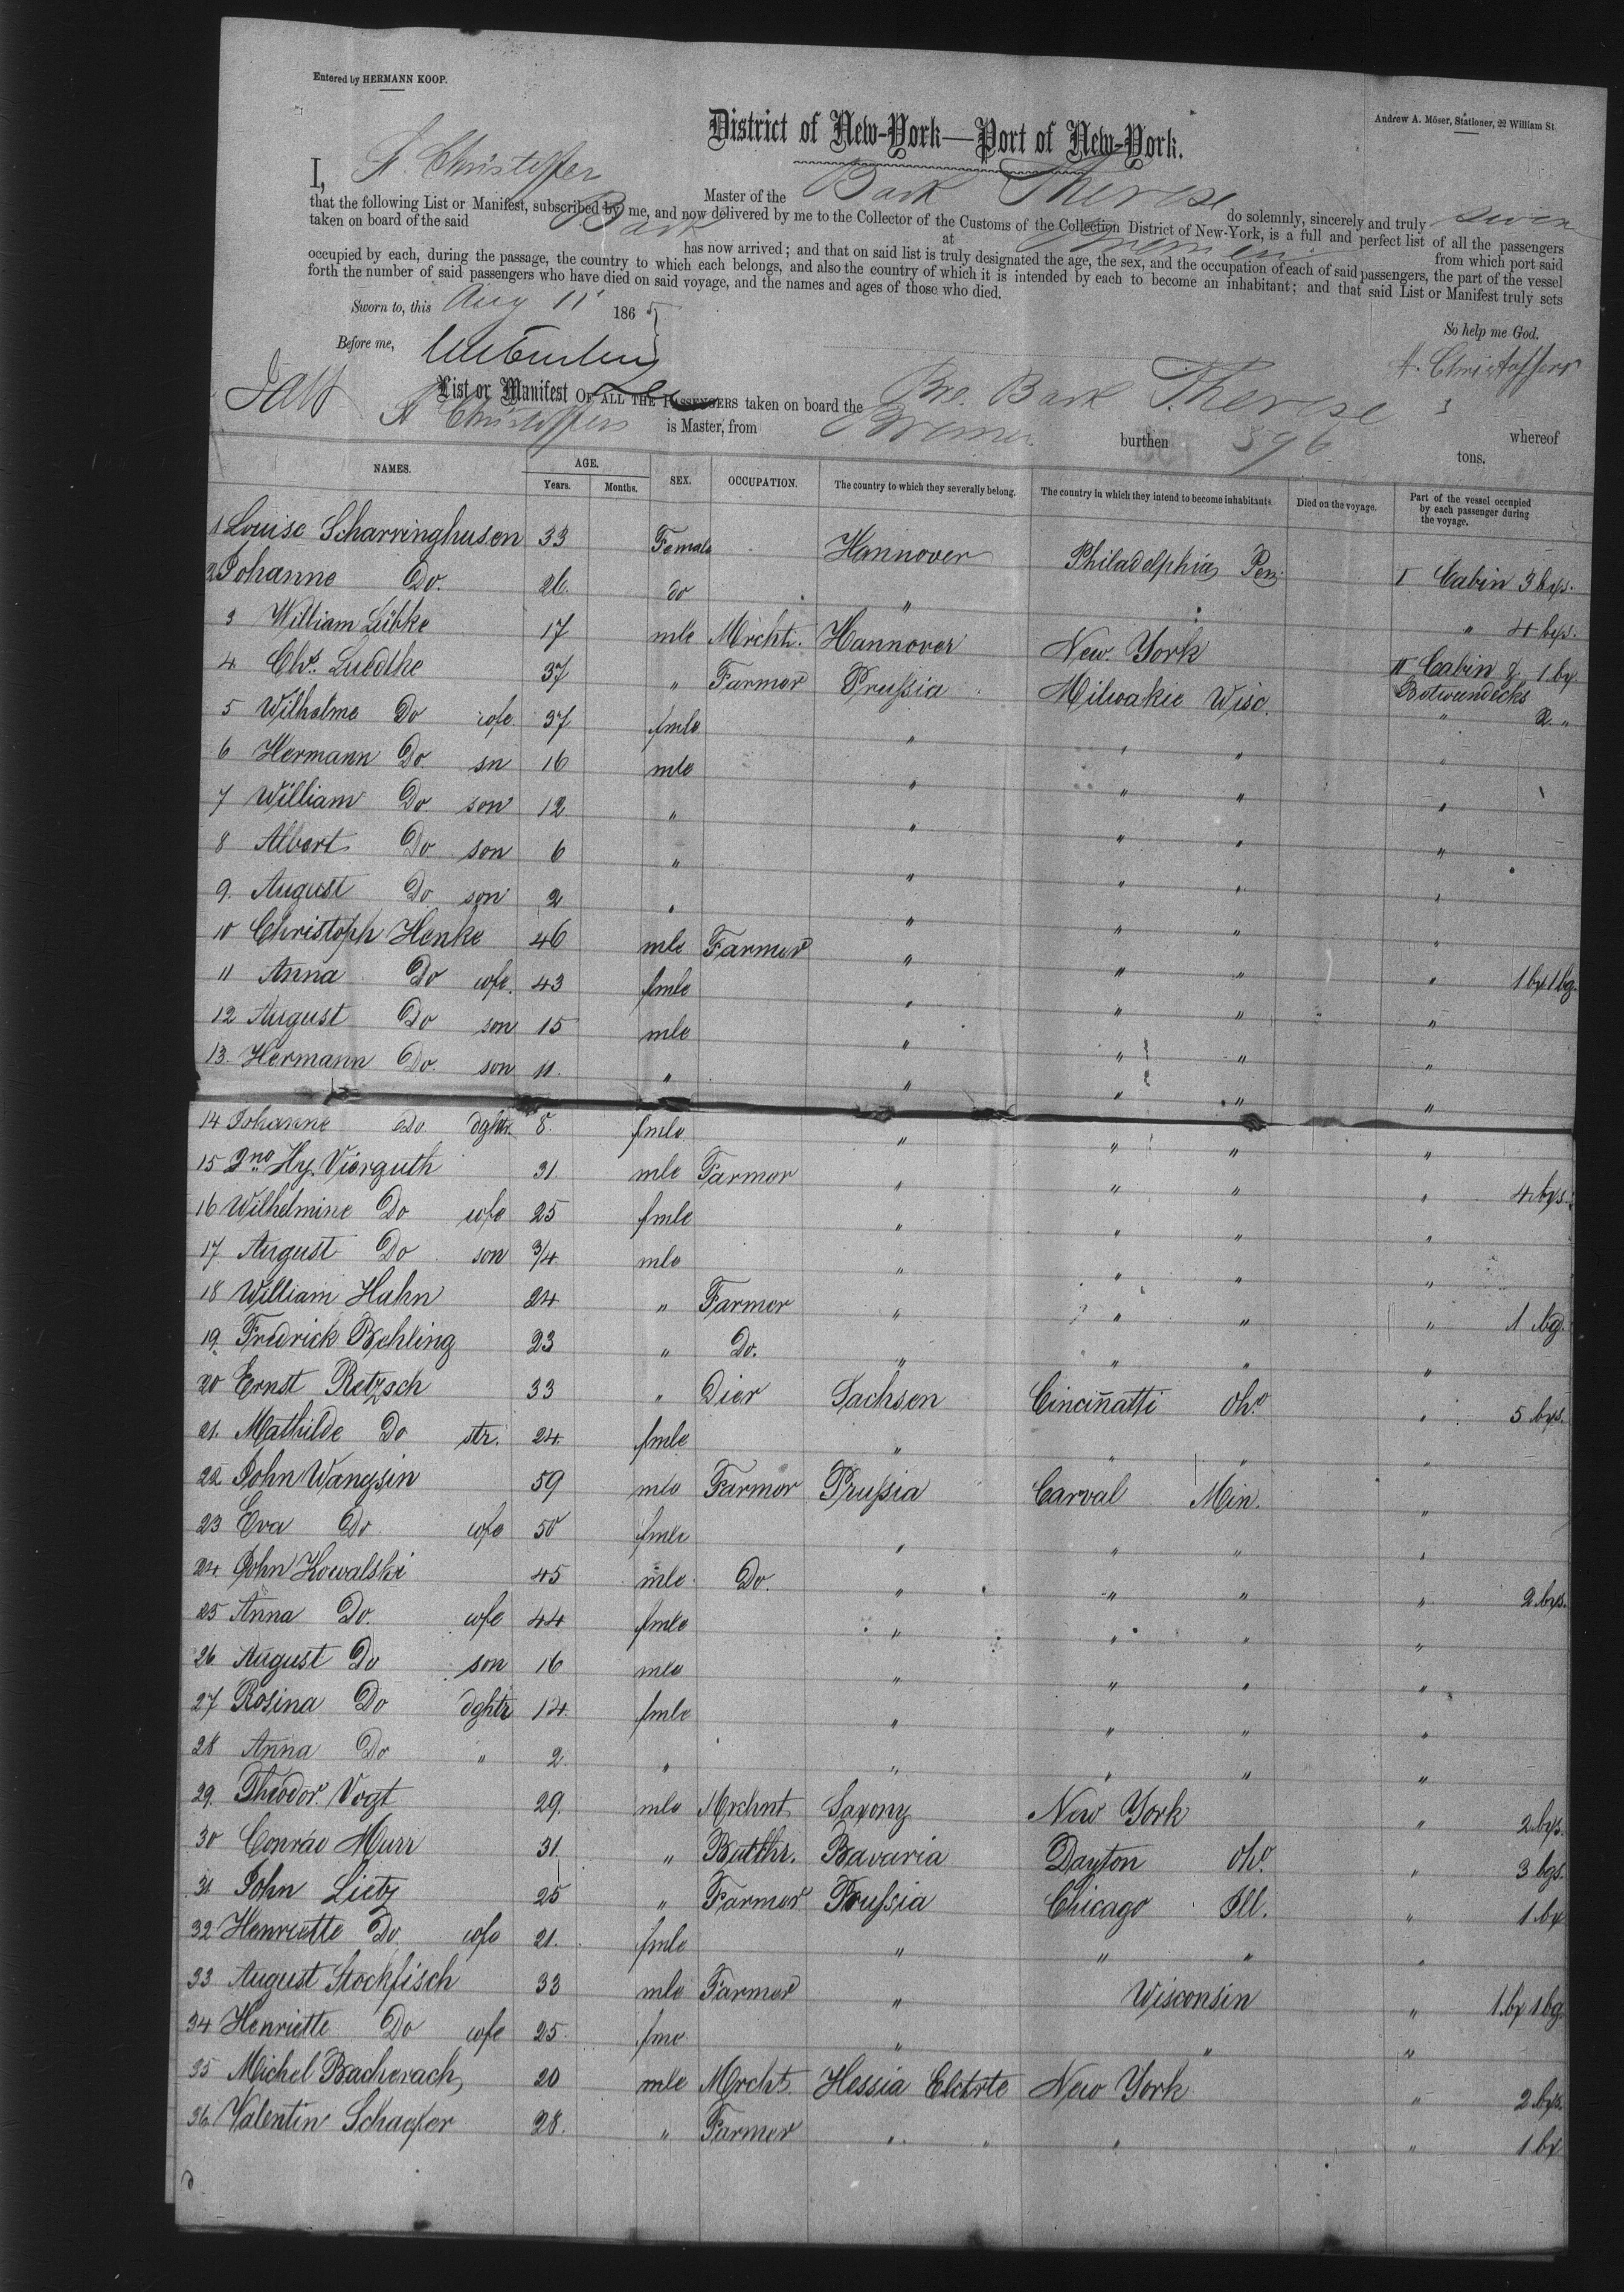 Entered by HERMANN KOOP.
Andrew A. Möser, Stationer, 22 William St.
District of New-York—Port of New-York.
I, A. Christoffer Master of the Bark Therese do solemnly, sincerely and truly swear
that the following List or Manifest, subscribed by me, and now delivered by me to the Collector of the Customs of the Collection District of New-York, is a full and perfect list of all the passengers
taken on board of the said Bark at Bremen from which port said
has now arrived; and that on said list is truly designated the age, the sex, and the occupation of each of said passengers, the part of the vessel
occupied by each, during the passage, the country to which each belongs, and also the country of which it is intended by each to become an inhabitant; and that said List or Manifest truly sets
forth the number of said passengers who have died on said voyage, and the names and ages of those who died.
Sworn to, this Aug 11 1865
So help me God.
Before me,
A. Christoffers
List or Manifest OF ALL THE PASSENGERS taken on board the Bre. Bark Therese whereof
A Christoffers is Master, from Bremen burthen 596 tons.
NAMES. AGE. Years. Months. SEX. OCCUPATION. The country to which they severally belong. The country in which they intend to become inhabitants. Died on the voyage. Part of the vessel occupied by each passenger during the voyage.
1 Louise Scharringhusen 33 Female Hannover Philadelphia Pen. I Cabin 3 bxs.
2 Johanne Do. 26. do " " 4 bxs.
3 William Lübke 17 mle Mrcht. Hannover New York II Cabin & 1 bx
4 Chs. Luedtke 37 " Farmer Prußia Milwakie Wisc. Betweendecks 2 "
5 Wilhelme Do wfe 37 fmle " " " "
6 Hermann Do. sn 16 mle " " " "
7 William Do son 12 " " " " "
8 Albert Do son 6 " " " " "
9. August Do son 2 " " " " "
10 Christoph Henke 46 mle Farmer " " " " 1 bx 1 bg.
11 Anna Do wfe. 43 fmle " " " "
12 August Do son 15 mle " " " "
13. Hermann Do. son 11. " " " " "
14 Johanne Do. dghtr. 8. fmle " " " "
15 Jno Hy. Vierguth 31. mle Farmer " " " " 4 bxs.
16 Wilhelmine Do wfe 25 fmle " " " "
17 August Do son 3/4 mle " " " "
18 William Hahn 24 " Farmer " " " " 1 bg.
19. Fredrick Behling 23 " Do. " " " "
20 Ernst Retzsch 33 " Dier Sachsen Cincinnatti Oho. " 5 bxs.
21. Mathilde Do str. 24. fmle " " " "
22 John Wangsin 59 mle Farmer Prußia Carval Min. "
23 Eva Do wfe 50 fmle " " " "
24 John Kowalski 45 mle Do. " " " " 2 bxs.
25 Anna Do. wfe 44 fmle " " " "
26 August Do son 16 mle " " " "
27 Rosina Do dghtr 14. fmle " " " "
28 Anna Do " 2. " " " " "
29. Theodor Vogt 29. mle Mrchnt Saxony New York " 2 bxs.
30 Conrad Murr 31. " Butthr. Bavaria Dayton Oho. " 3 bgs.
31 John Lietz 25 " Farmer Prußia Chicago Ill. " 1 bx
32 Henriette Do. wfe 21. fmle " " " "
33 August Stockfisch 33 mle Farmer " Wisconsin " 1 bx 1 bg.
34 Henriette Do wfe 25. fme " " "
35 Michel Bacherach 20 mle Mrcht. Hessia Elctrte New York " 2 bxs.
36 Valentin Schaefer 28. " Farmer " " " " 1 bx